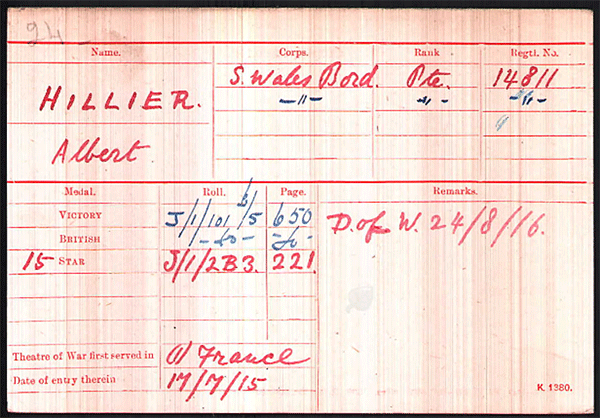 24
Name. Corps. Rank Regtl. No.
HILLIER. S. Wales Bord. Pte. 14811
-"- -"- -"-
Albert
Medal. Roll. Page. Remarks.
VICTORY J/1/101 B/5 650 D. of W. 24/8/16.
BRITISH -do- -do-
15 STAR J/1/2B3. 221.
Theatre of War first served in (1) France
Date of entry therein 17/7/15
K. 1380.